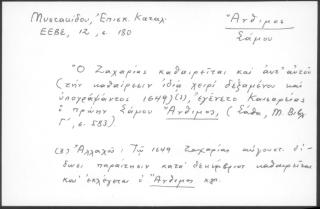 Μυστακίδου, Ἐπισκ. Καταλ.
ΕΕΒΣ, 12, σ. 180
Ἄνθιμος
Σάμου
"Ὁ Ζαχαρίας καθαιρεῖται καὶ ἀντ' αὐτοῦ
(τὴν καθαίρεσιν ἰδίᾳ χειρὶ δεξαμένου καὶ
ὑπογράψαντος 1649)(1), ἐγένετο Καισαρείας
ὁ πρῴην Σάμου Ἄνθιμος, (Σάθα, Μ. Βιβλ.
Γ', σ. 583)
Ἀλλαχοῦ: Τῷ 1649 Ζαχαρίας αὐγουστ. δί-
δωσι παραίτησιν κατὰ δεκέμβριον καθαιρεῖται
καὶ ἐκλέγεται ὁ Ἄνθιμος κλπ.